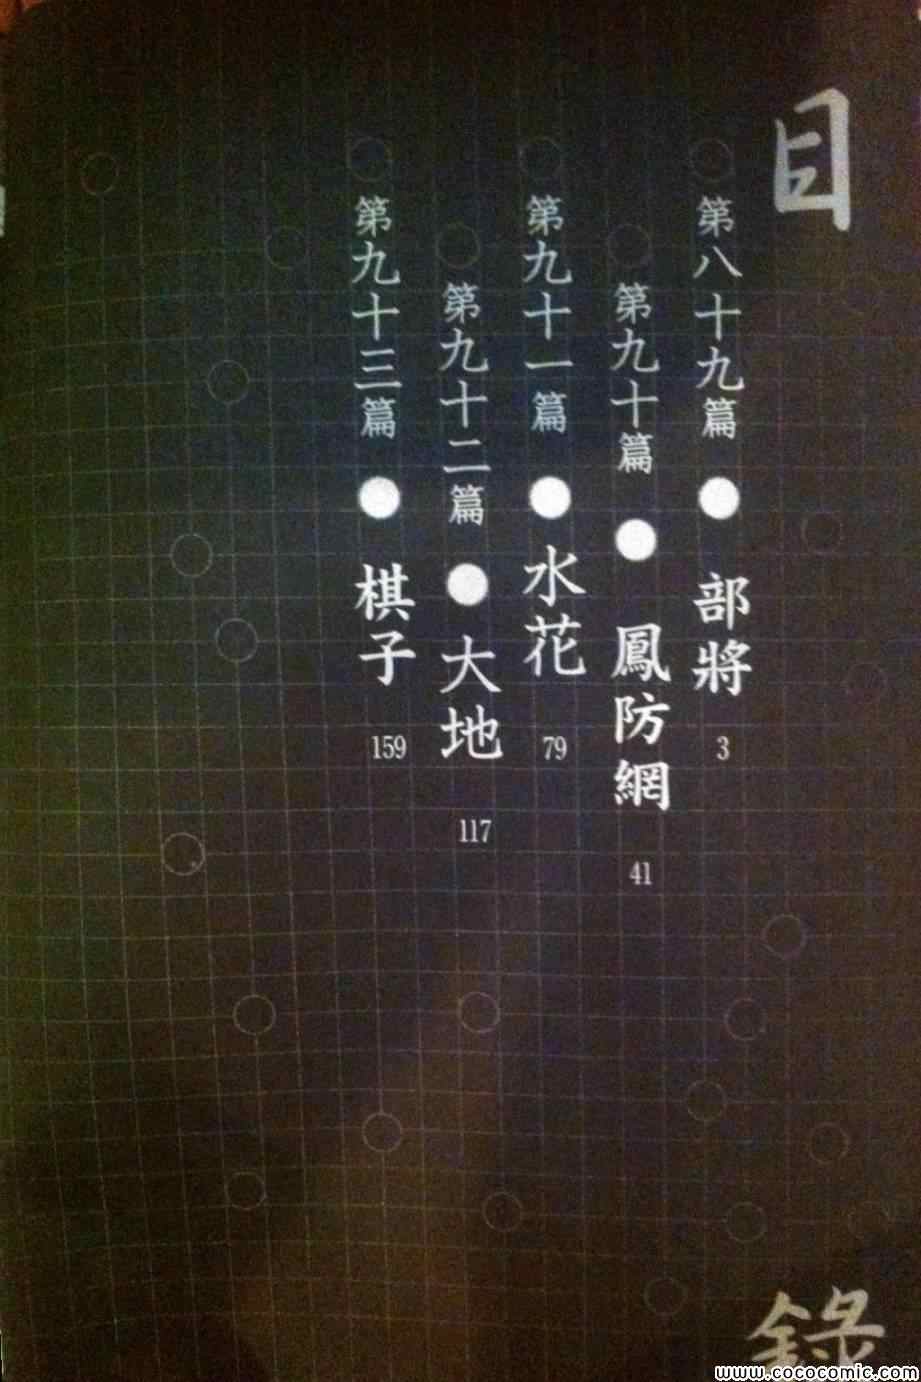 目錄
第八十九篇 ● 部將 3
第九十篇 ● 鳳防網 41
第九十一篇 ● 水花 79
第九十二篇 ● 大地 117
第九十三篇 ● 棋子 159
www.cococomic.com